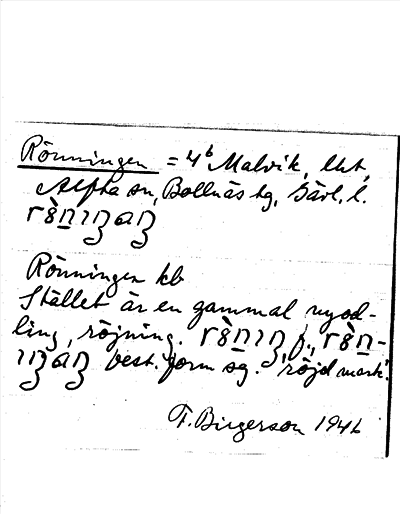 Rönningen = 4b Malvik, lht,
Alfta sn, Bollnäs tg, Gävl. l.
Rönningen kb
Stället är en gammal nyod-
ling, röjning. f.,
best. form sg. 'röjd mark'.
F. Birgerson 1946